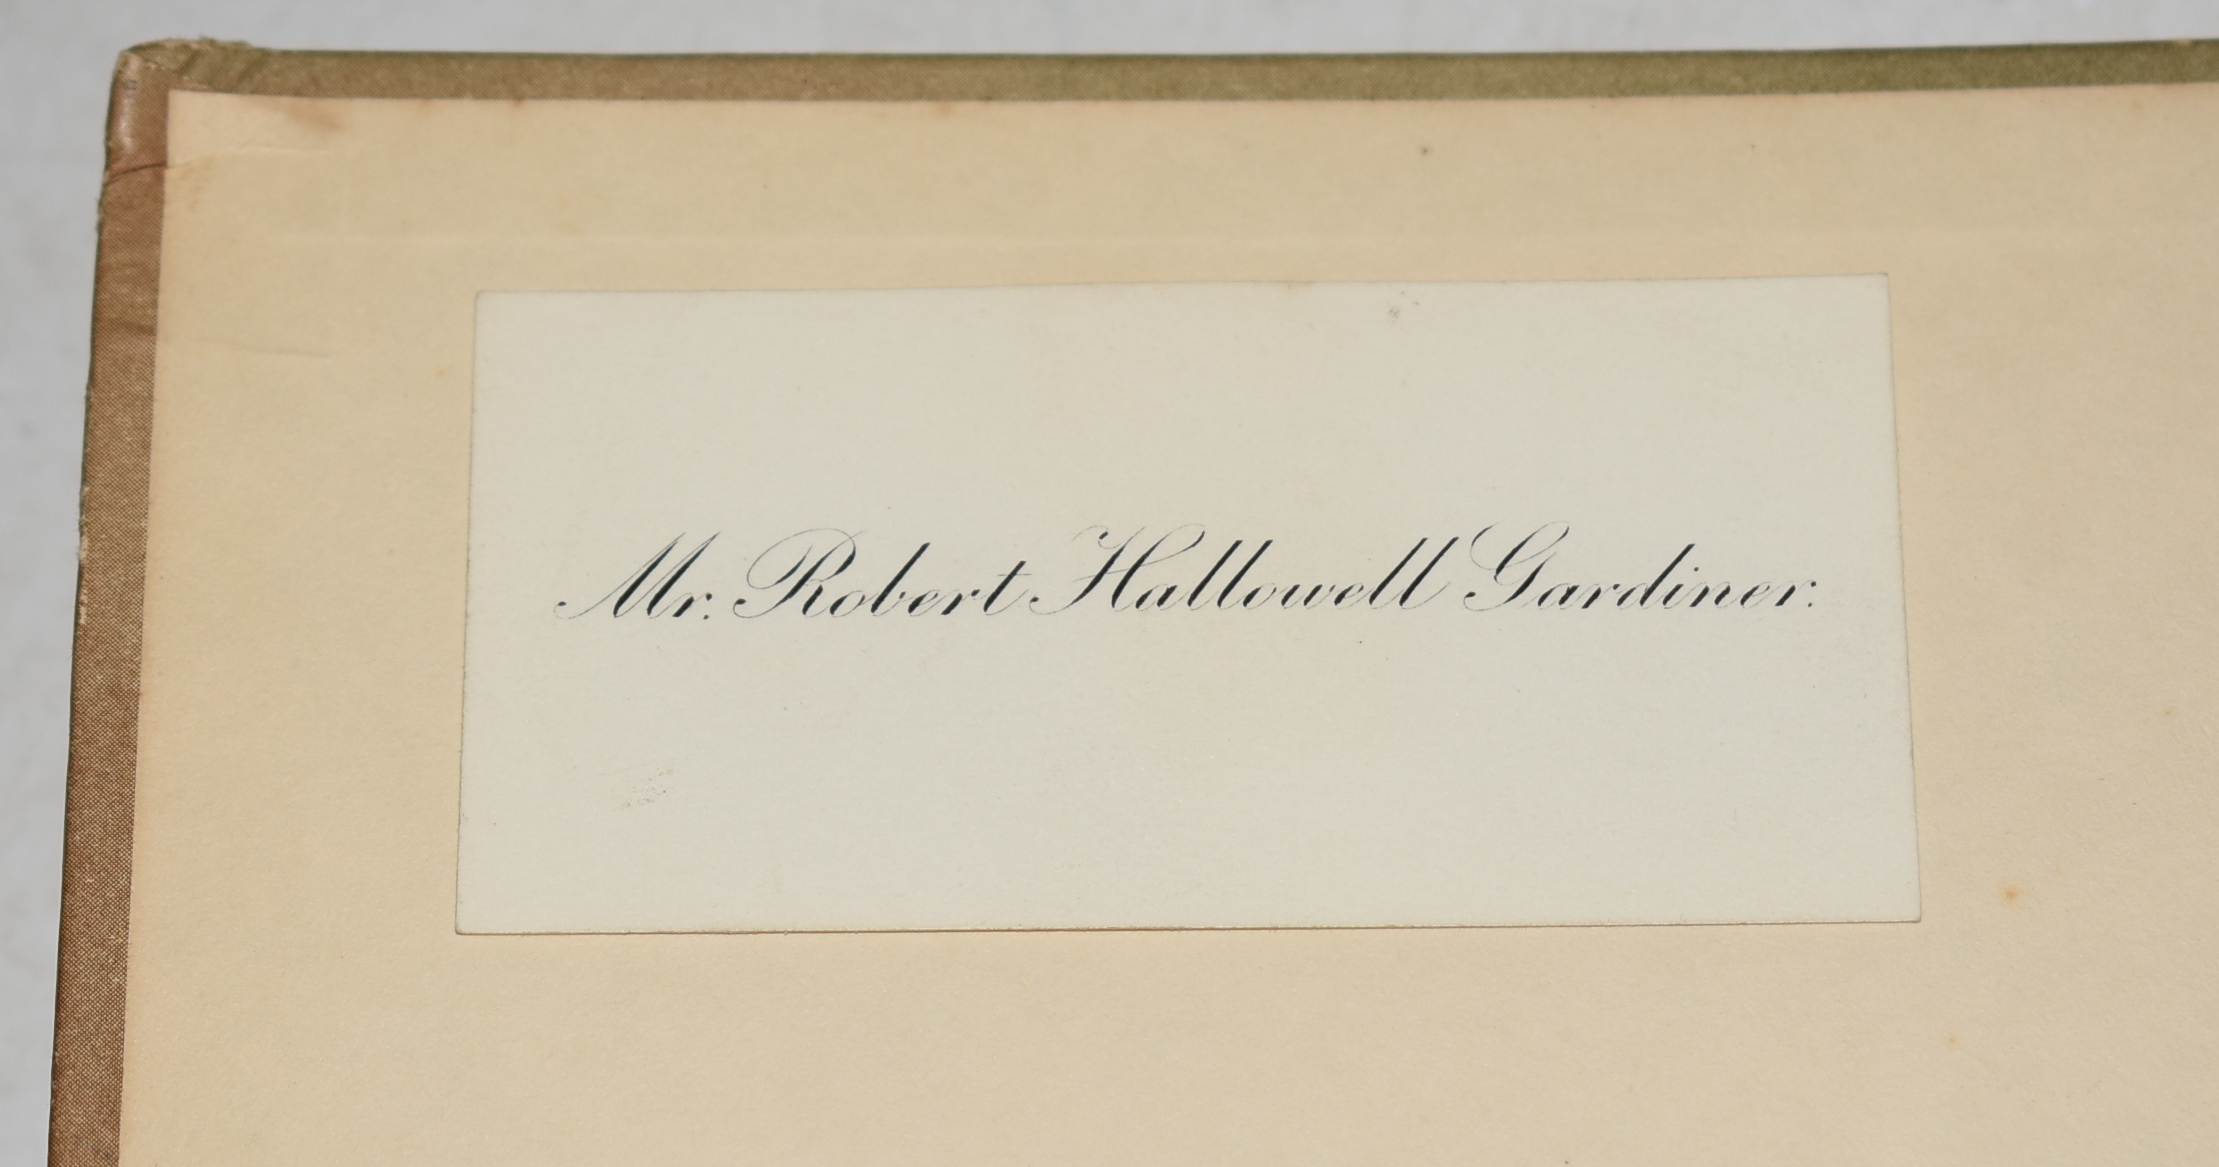 Mr. Robert Hallowell Gardiner.